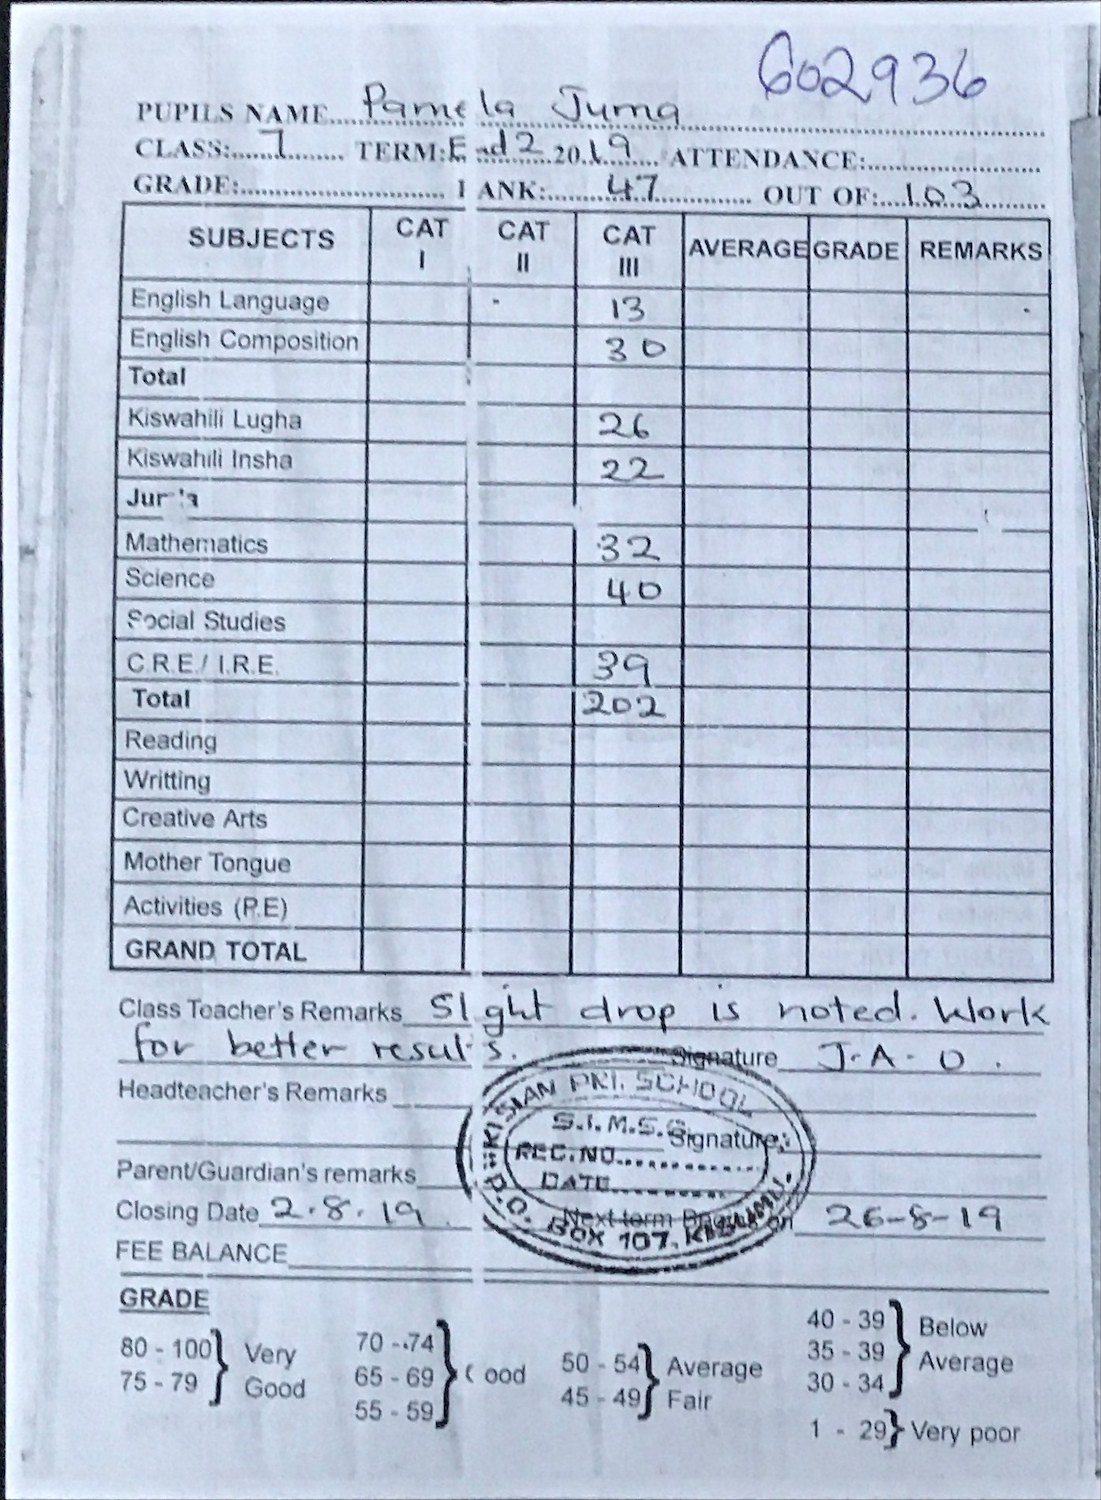 602936
PUPILS NAME Pamela Juma
CLASS: 7 TERM: End 2 2019 ATTENDANCE:
GRADE: ANK: 47 OUT OF: 103
SUBJECTS CAT I CAT II CAT III AVERAGE GRADE REMARKS
English Language 13
English Composition 30
Total
Kiswahili Lugha 26
Kiswahili Insha 22
Mathematics 32
Science 40
Social Studies
C.R.E./ I.R.E. 39
Total 202
Reading
Writting
Creative Arts
Mother Tongue
Activities (P.E)
GRAND TOTAL
Class Teacher's Remarks Slight drop is noted. Work
for better results. Signature J.A.O.
Headteacher's Remarks
Signature
Parent/Guardian's remarks
Closing Date 2.8.19 Next term on 26-8-19
FEE BALANCE
KISIAN PRI. SCHOOL
REC. NO.
DATE
P.O. BOX 107, KISUMU.
GRADE
80 - 100 75 - 79 Very Good
70 - 74 65 - 69 55 - 59 ood
50 - 54 45 - 49 Average Fair
40 - 39 35 - 39 30 - 34 Below Average
1 - 29 Very poor